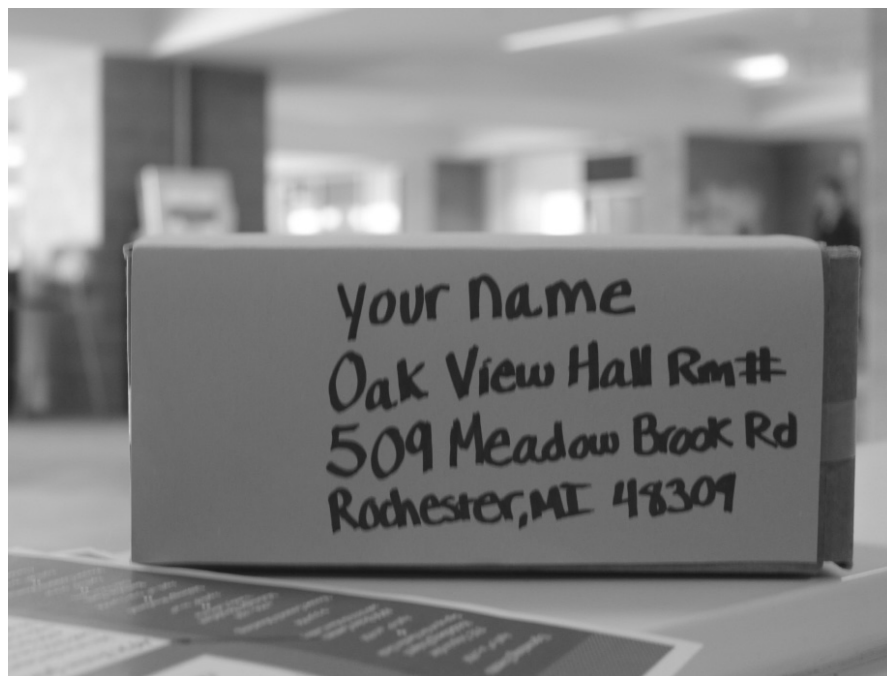 Your name
Oak View Hall Rm#
509 Meadow Brook Rd
Rochester, MI 48309